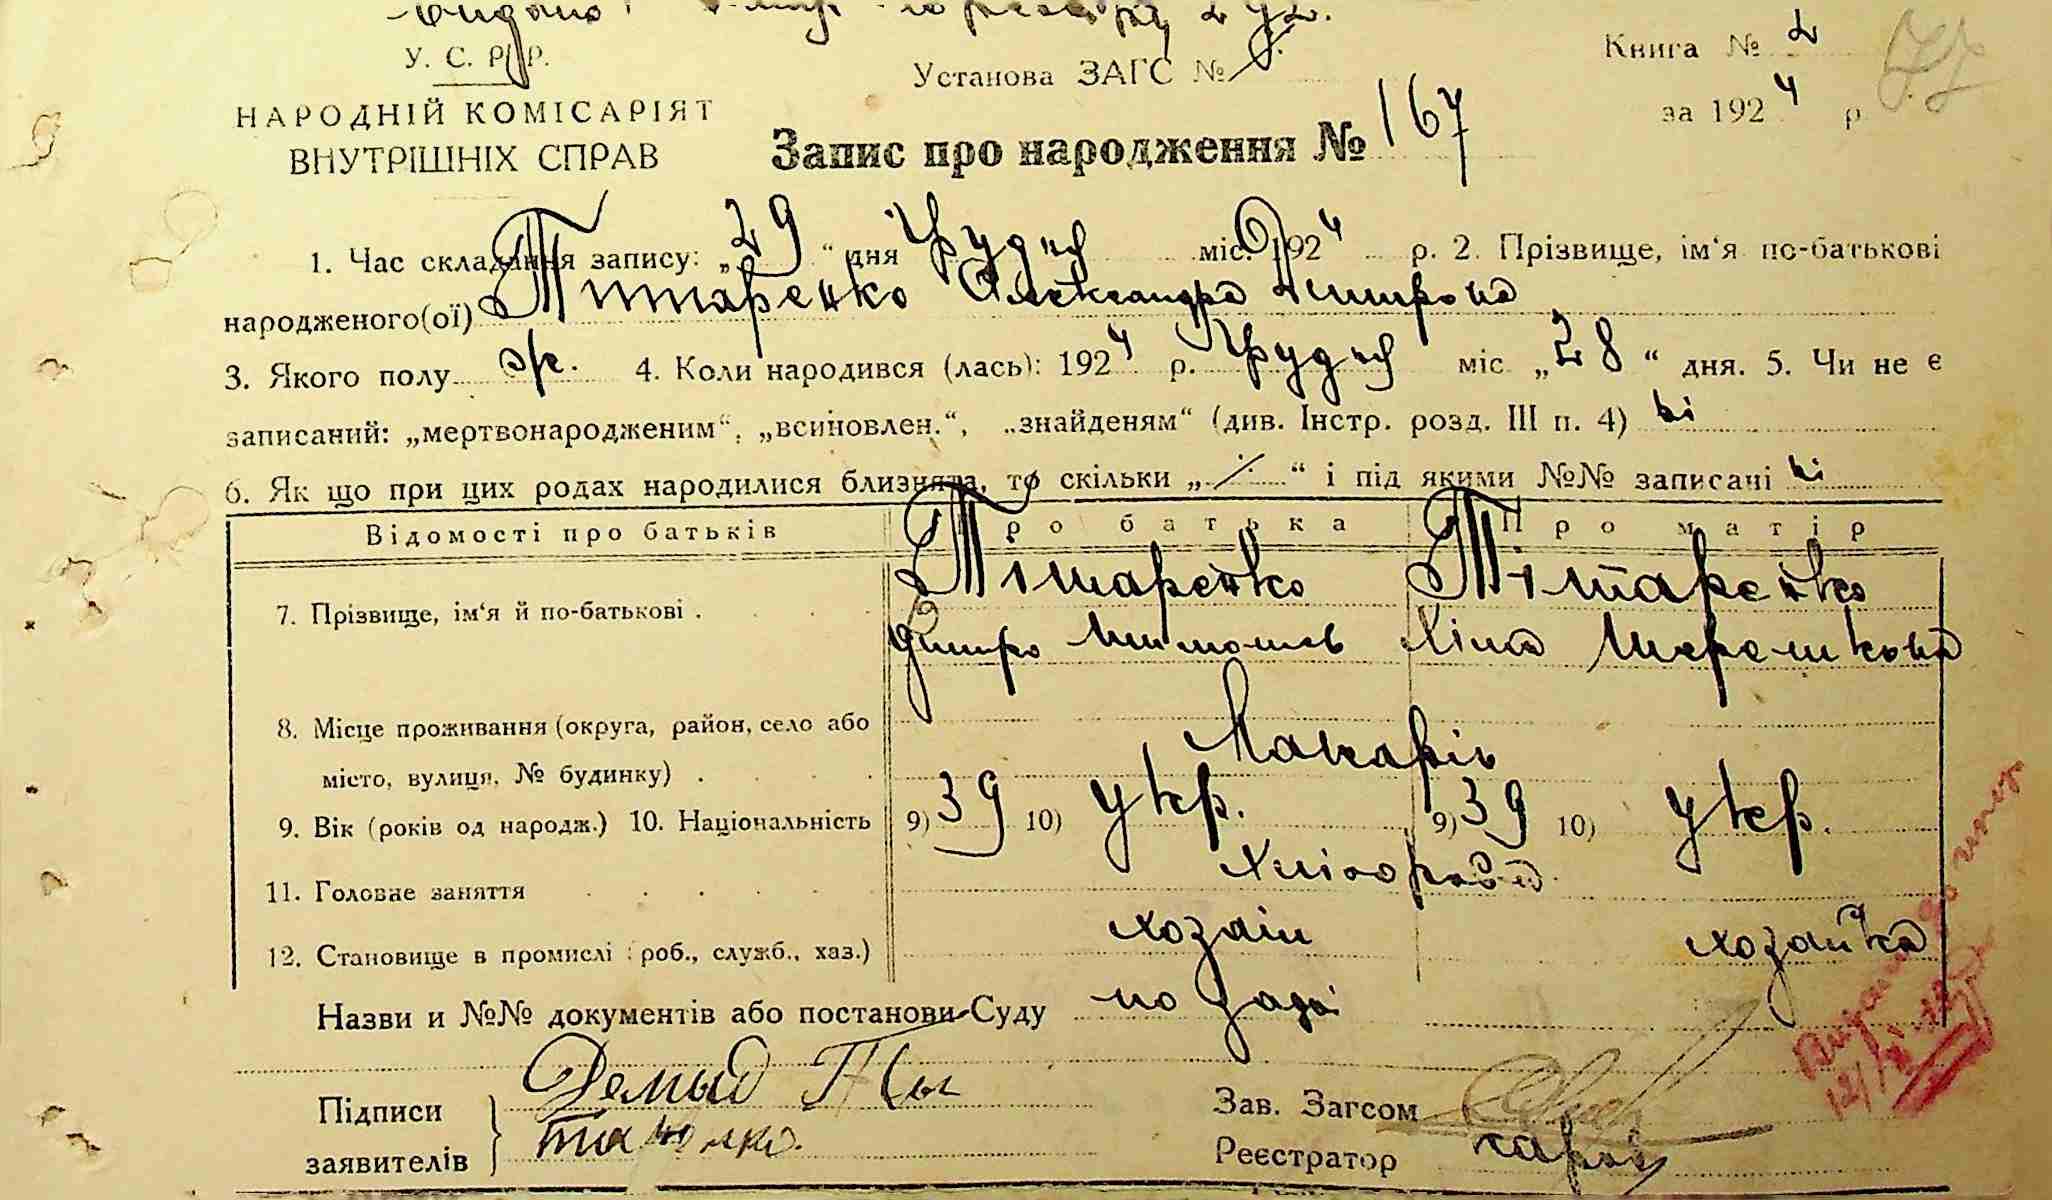 У. С. Р. Р.
Установа ЗАГС №
Книга № 2
77
НАРОДНІЙ КОМІСАРІЯТ
ВНУТРІШНІХ СПРАВ
за 1924 р
Запис про народження № 167
1. Час складання запису: „29“ дня Грудня міс. 1924 р. 2. Прізвище, ім‘я по-батькові
народженого(ої) Титаренко Александра Дмитровна
3. Якого полу ж. 4. Коли народився (лась): 1924 р. Грудня міс „28“ дня. 5. Чи не є
записаний: „мертвонародженим“, „всиновлен.“, „знайденям“ (див. Інстр. розд. III п. 4) ні
6. Як що при цих родах народилися близнята, то скільки „ “ і під якими №№ записані ні
Відомості про батьків Про батька Про матір
7. Прізвище, ім‘я й по-батькові . Тітаренко Тітаренко
Дмитро Тимошов
8. Місце проживання (округа, район, село або
місто, вулиця, № будинку) . Макарів
9. Вік (років од народж.) 10. Національність 9) 39 10) укр. 9) 39 10) укр.
11. Головне заняття Хліборобст.
12. Становище в промислі (роб., служб., хаз.) хозаін хозайка
Назви и №№ документів або постанови Суду
Підписи
заявителів
Зав. Загсом
Реєстратор